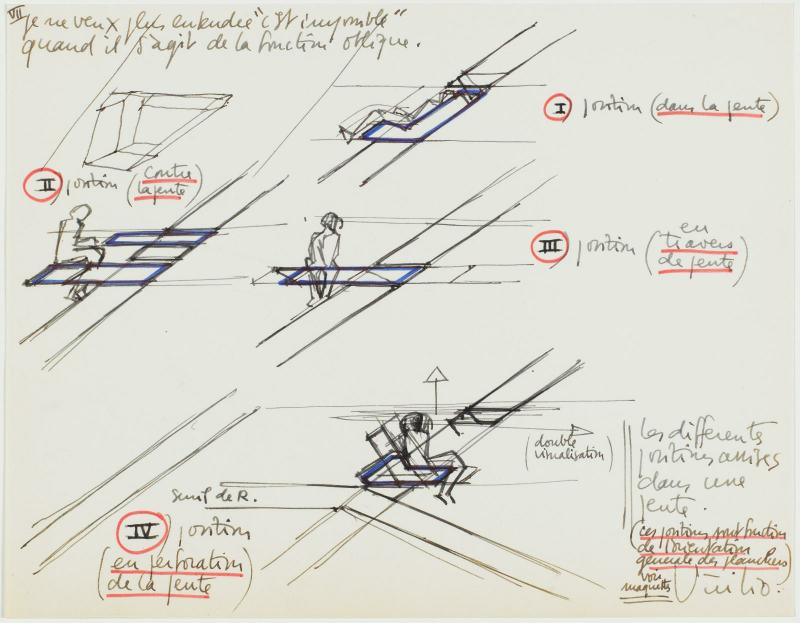 VII
je ne veux plus entendre "c'est impossible"
quand il s'agit de la fonction oblique.
I position (dans la pente)
II position (contre
la pente)
III position (en
travers
de pente)
(double
visualisation)
Seuil de R.
IV position
(en perforation
de la pente)
les différentes
positions assises
dans une
pente.
(ces positions sont fonction
de l'orientation
générale des planchers)
voir
maquettes
Virilio.